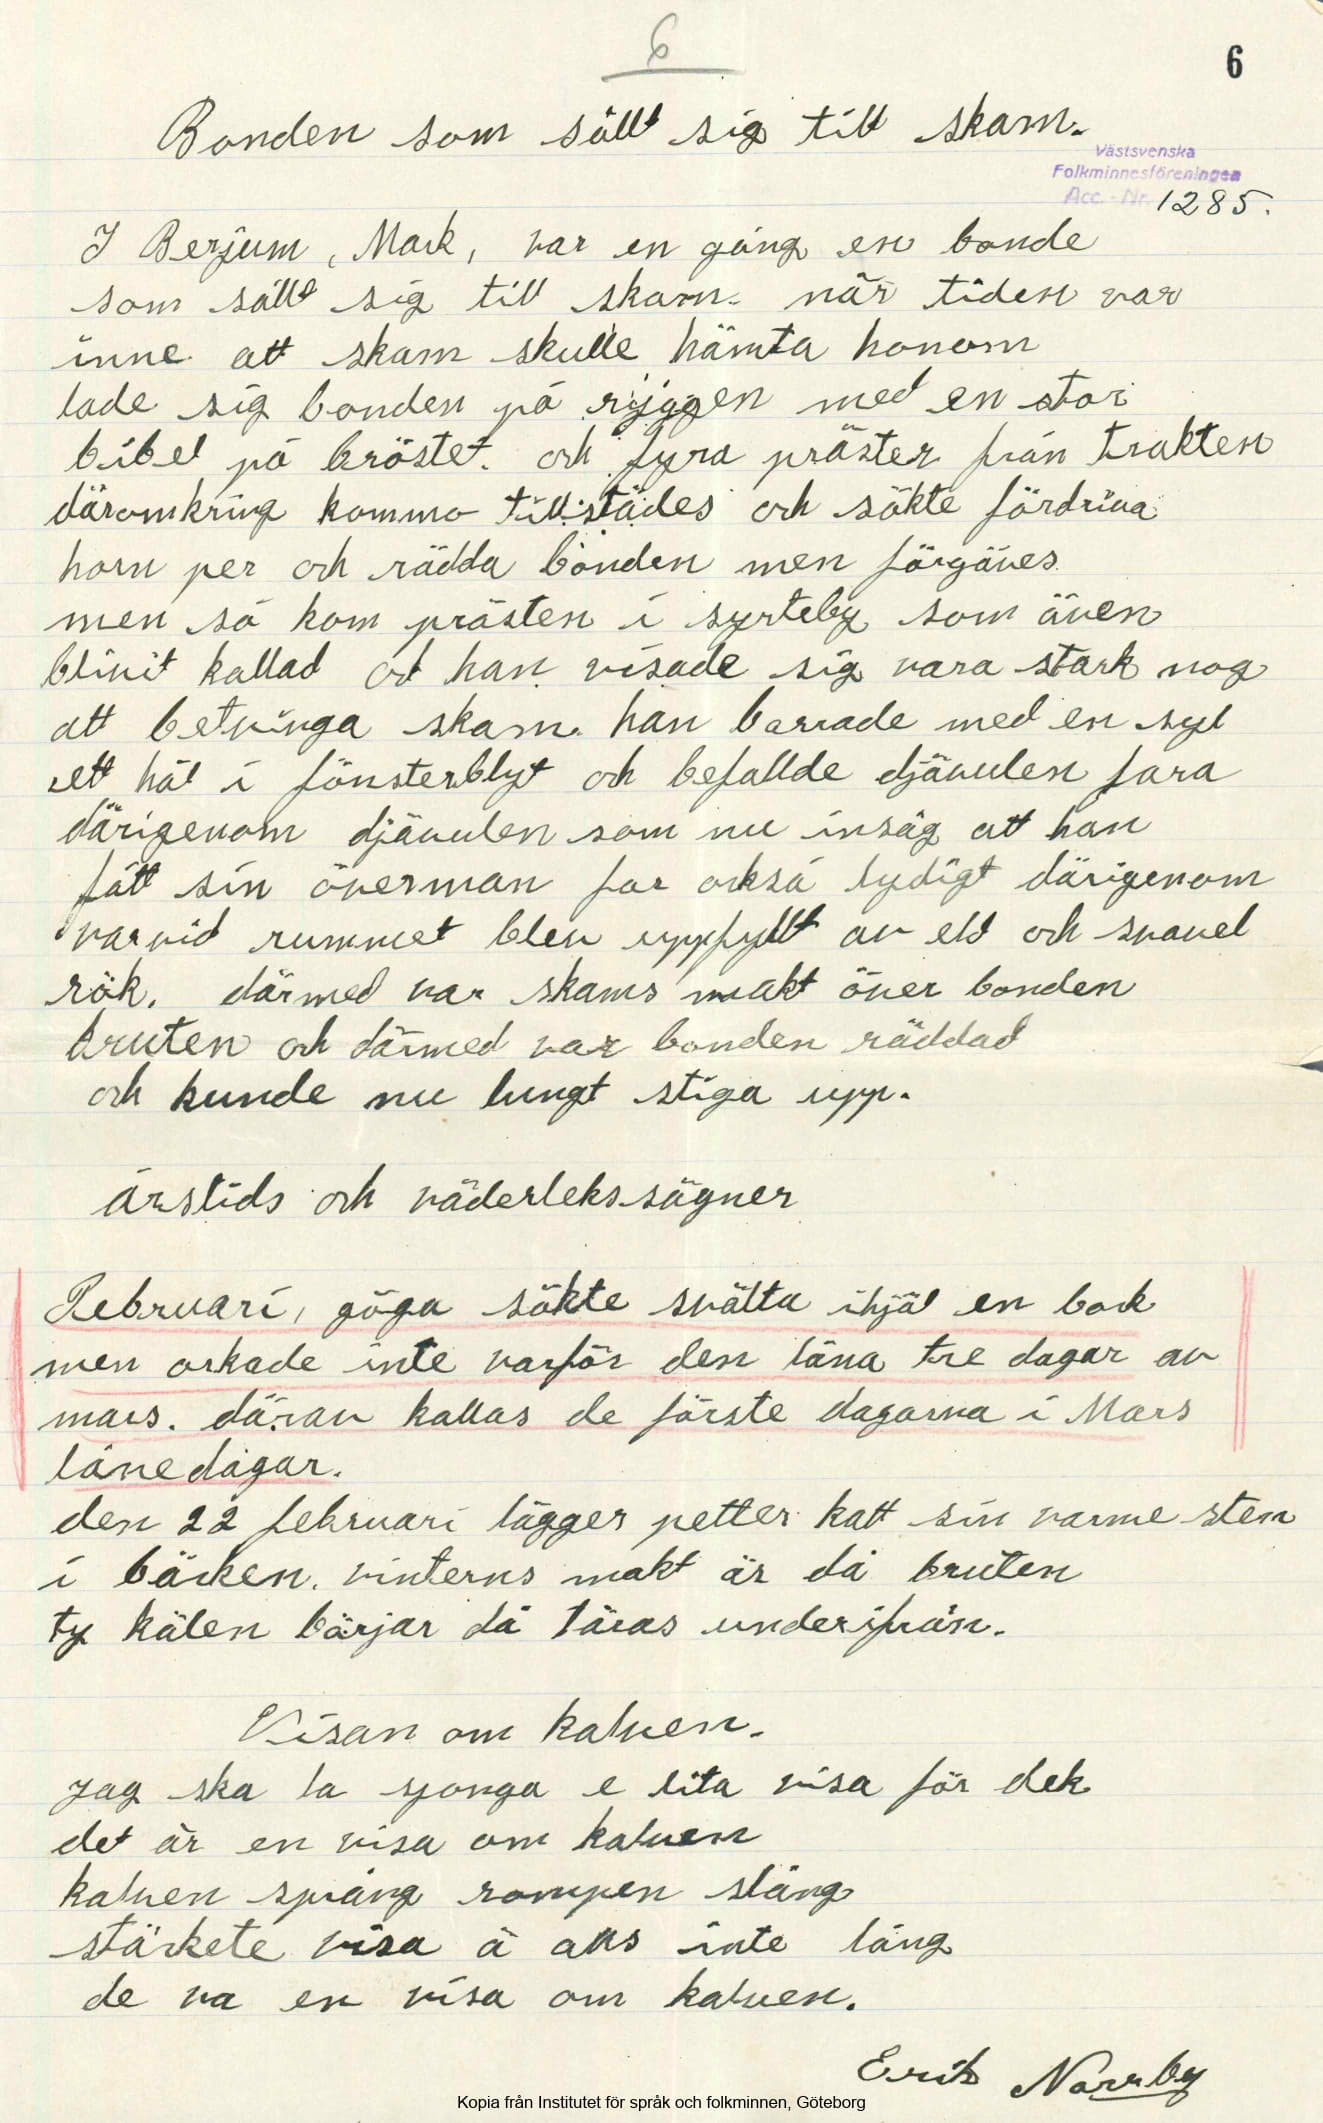 6
6
Bonden som sållt sig till skam.
Västsvenska
Folkminnesföreningen
Acc. - Nr. 1285.
I Berjum, Mark, var en gång en bonde
som sållt sig till skam. när tiden var
inne att skam skulle hämta honom
lade sig bonden på ryggen med en stor
bibel på bröstet. och fyra präster från trakten
däromkring kommo tillstädes och sökte fördriva
horn per och rädda bonden men förgäves
men så kom prästen i syrteby som även
blivit kallad och han visade sig vara stark nog
att betvinga skam. han borrade med en syl
ett hål i fönsterblyt och befallde djävulen fara
därigenom djävulen som nu insåg att han
fått sin överman for också lydigt därigenom
varvid rummet blev uppfyllt av eld och svavel
rök. därmed var skams makt över bonden
bruten och därmed var bonden räddad
och kunde nu lungt stiga upp.
årstids och väderlekssägner
Februari, göga sökte svälta ihjäl en bock
men orkade inte varför den låna tre dagar av
mars. därav kallas de förste dagarna i Mars
lånedagar.
den 22 februari lägger petter katt sin varme sten
i bäcken. vinterns makt är då bruten
ty kälen börjar då täras underifrån.
Visan om kalven.
jag ska la sjonga e lita visa för dek
det är en visa om kalven
kalven sprang rompen släng
stärkete visa ä alls inte lång
de va en visa om kalven.
Erik Norrby
Kopia från Institutet för språk och folkminnen, Göteborg